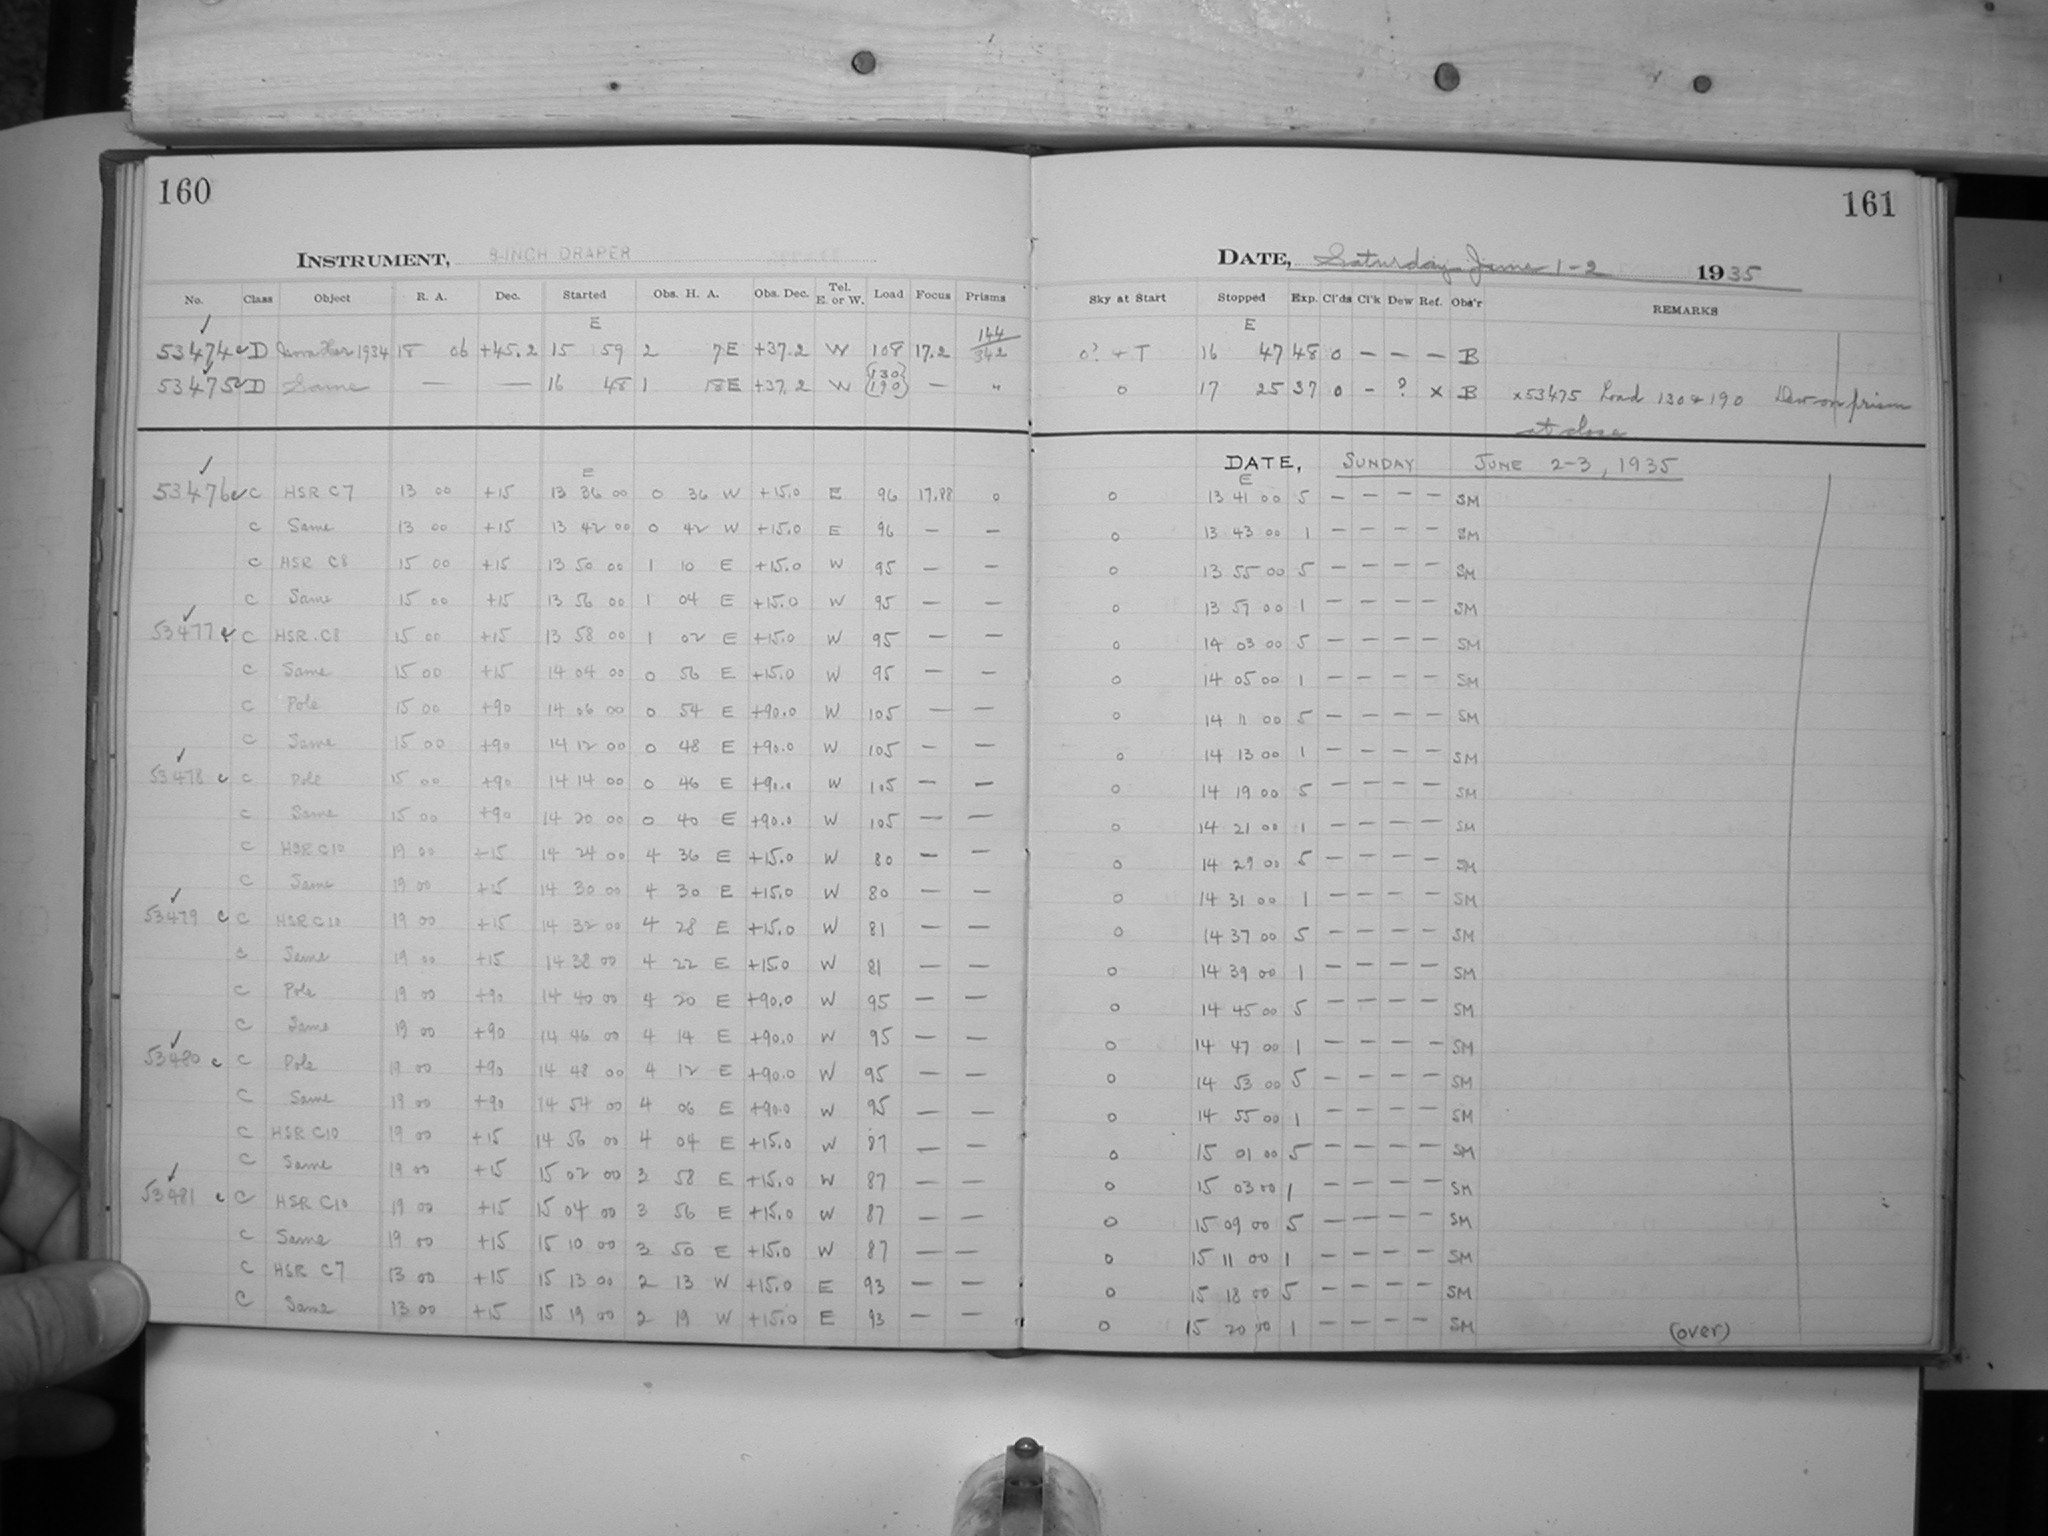 160
161
INSTRUMENT, 8-INCH DRAPER
DATE, Saturday June 1-2 1935
No. Class Object R. A. Dec. Started Obs. H. A. Obs. Dec. Tel. E. or W. Load Focus Prisms Sky at Start Stopped Exp. Cl'ds Cl'k Dew Ref. Obs'r REMARKS
E E
53474 c D Nova Her 1934 18 06 +45.2 15 59 2 7 E +37.2 W 108 17.2 144/342 0? + T 16 47 48 0 — — — B
53475 c D Same — — 16 48 1 18 E +37.2 W {130 190} — " 0 17 25 37 0 - ? x B x 53475 Load 130 & 190 Dew on prism at close
DATE, SUNDAY JUNE 2-3, 1935
E E
53476 c C HSR C7 13 00 +15 13 36 00 0 36 W +15.0 E 96 17.88 0 0 13 41 00 5 — — — — SM
C Same 13 00 +15 13 42 00 0 42 W +15.0 E 96 — — 0 13 43 00 1 — — — — SM
C HSR C8 15 00 +15 13 50 00 1 10 E +15.0 W 95 — — 0 13 55 00 5 — — — — SM
C Same 15 00 +15 13 56 00 1 04 E +15.0 W 95 — — 0 13 57 00 1 — — — — SM
53477 c C HSR C8 15 00 +15 13 58 00 1 02 E +15.0 W 95 — — 0 14 03 00 5 — — — — SM
C Same 15 00 +15 14 04 00 0 56 E +15.0 W 95 — — 0 14 05 00 1 — — — — SM
C Pole 15 00 +90 14 06 00 0 54 E +90.0 W 105 — — 0 14 11 00 5 — — — — SM
C Same 15 00 +90 14 12 00 0 48 E +90.0 W 105 — — 0 14 13 00 1 — — — — SM
53478 c C Pole 15 00 +90 14 14 00 0 46 E +90.0 W 105 — — 0 14 19 00 5 — — — — SM
C Same 15 00 +90 14 20 00 0 40 E +90.0 W 105 — — 0 14 21 00 1 — — — — SM
C HSR C10 19 00 +15 14 24 00 4 36 E +15.0 W 80 — — 0 14 29 00 5 — — — — SM
C Same 19 00 +15 14 30 00 4 30 E +15.0 W 80 — — 0 14 31 00 1 — — — — SM
53479 c C HSR C10 19 00 +15 14 32 00 4 28 E +15.0 W 81 — — 0 14 37 00 5 — — — — SM
C Same 19 00 +15 14 38 00 4 22 E +15.0 W 81 — — 0 14 39 00 1 — — — — SM
C Pole 19 00 +90 14 40 00 4 20 E +90.0 W 95 — — 0 14 45 00 5 — — — — SM
C Same 19 00 +90 14 46 00 4 14 E +90.0 W 95 — — 0 14 47 00 1 — — — — SM
53480 c C Pole 19 00 +90 14 48 00 4 12 E +90.0 W 95 — — 0 14 53 00 5 — — — — SM
C Same 19 00 +90 14 54 00 4 06 E +90.0 W 95 — — 0 14 55 00 1 — — — — SM
C HSR C10 19 00 +15 14 56 00 4 04 E +15.0 W 87 — — 0 15 01 00 5 — — — — SM
C Same 19 00 +15 15 02 00 3 58 E +15.0 W 87 — — 0 15 03 00 1 — — — — SM
53481 c C HSR C10 19 00 +15 15 04 00 3 56 E +15.0 W 87 — — 0 15 09 00 5 — — — — SM
C Same 19 00 +15 15 10 00 3 50 E +15.0 W 87 — — 0 15 11 00 1 — — — — SM
C HSR C7 13 00 +15 15 13 00 2 13 W +15.0 E 93 — — 0 15 18 00 5 — — — — SM
C Same 13 00 +15 15 19 00 2 19 W +15.0 E 93 — — 0 15 20 00 1 — — — — SM
(over)